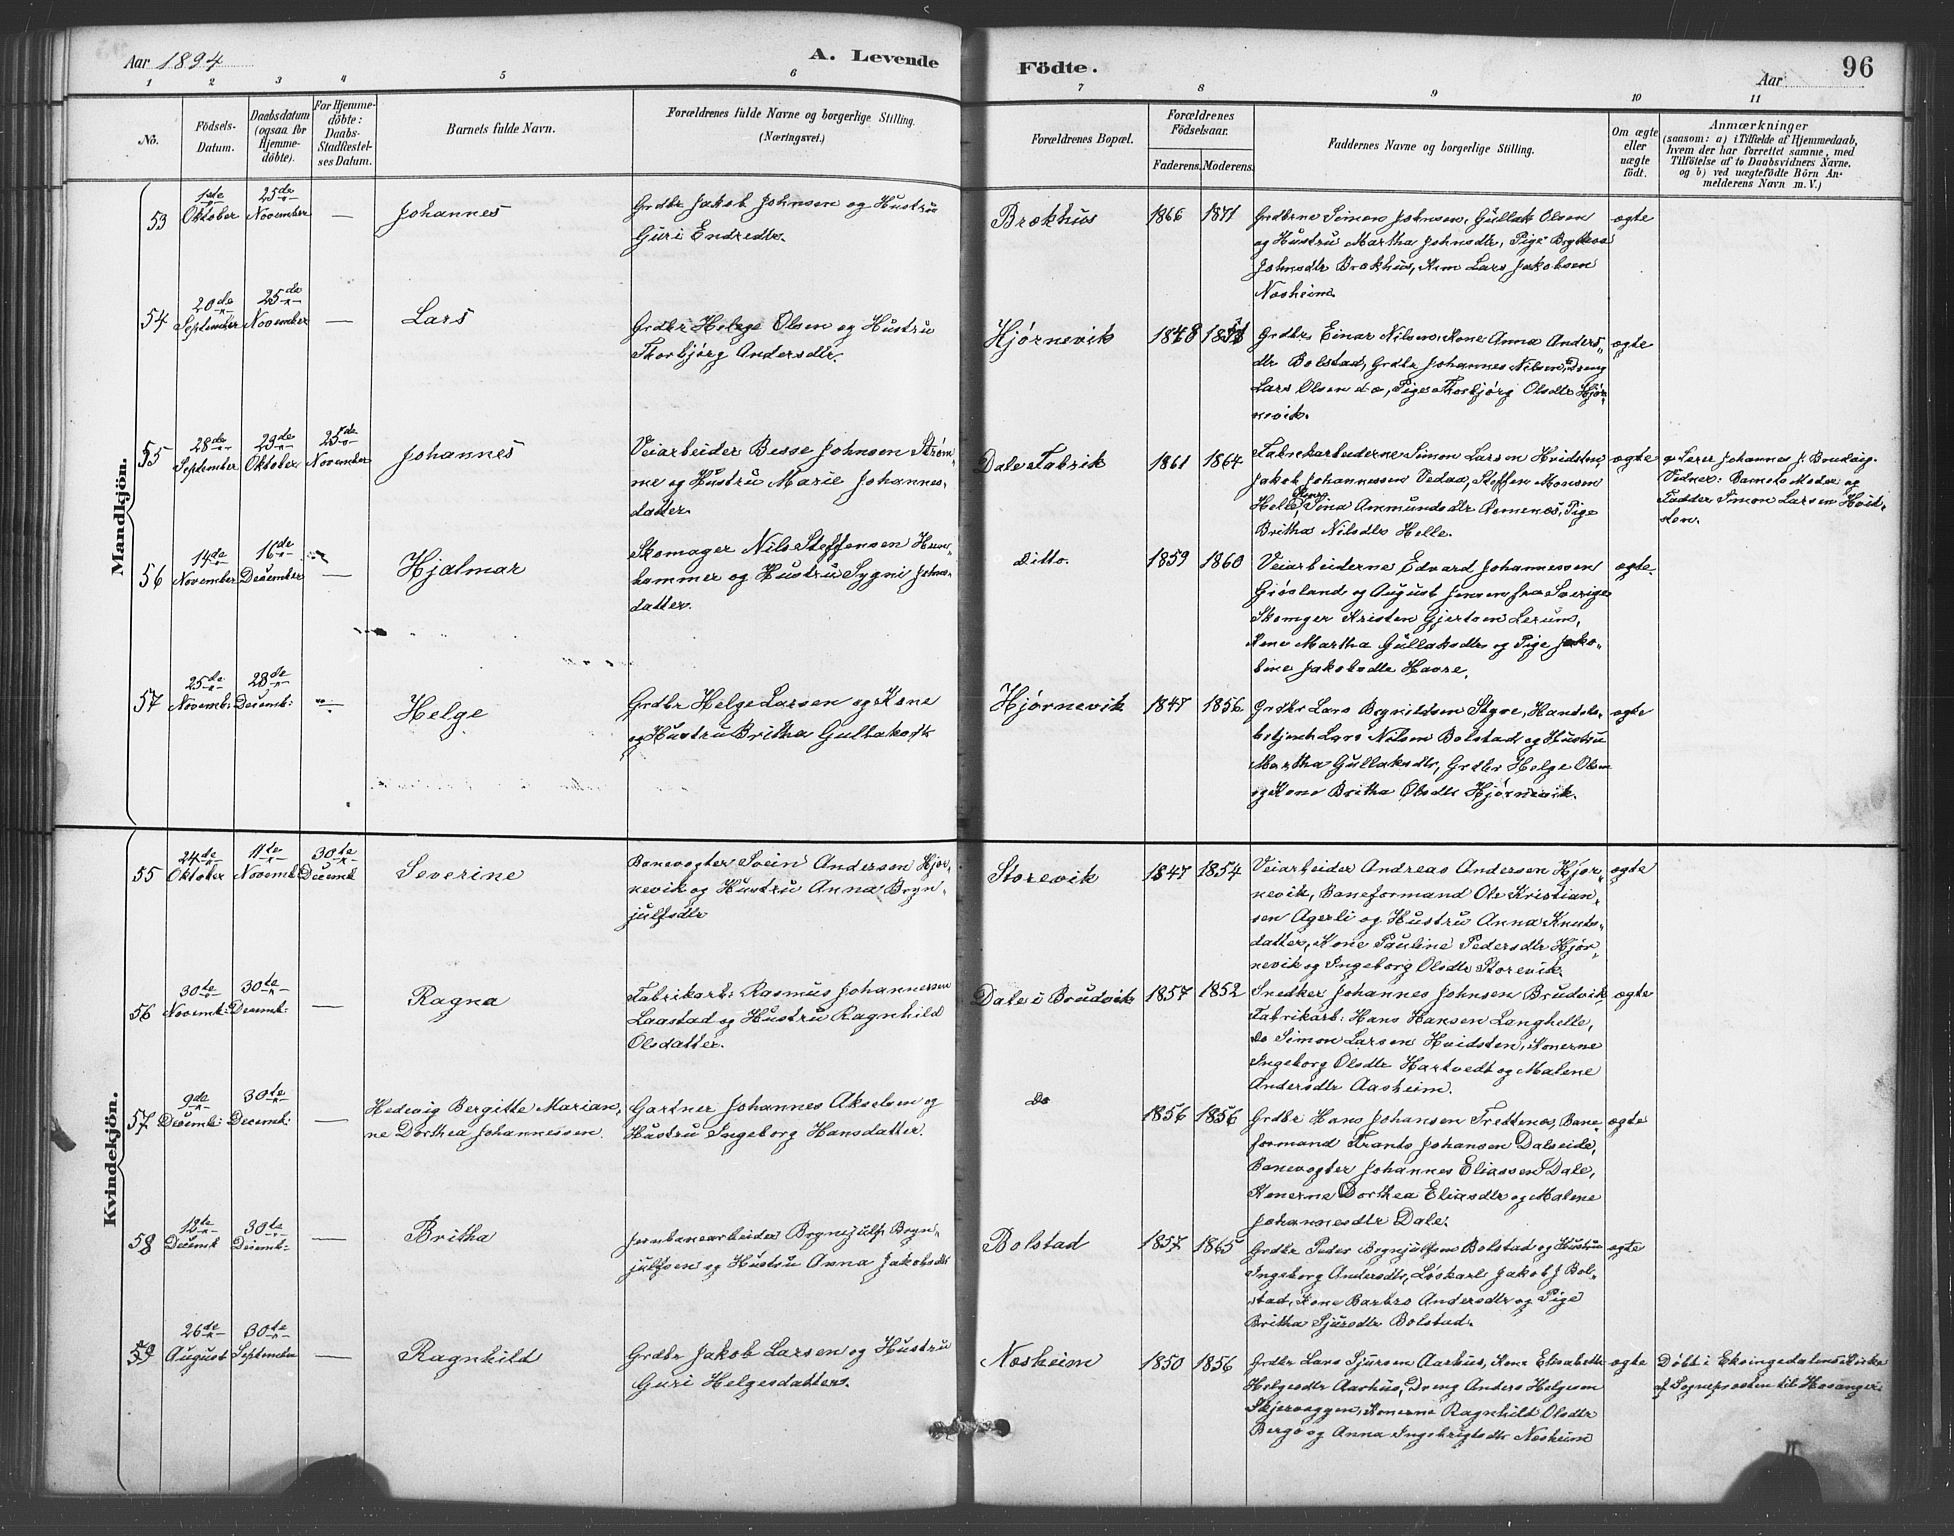 Aar 1894
A. Levende
Födte.
Aar
96
1 2 3 4 5 6 7 8 9 10 11
No.
Födsels-
Datum.
Daabsdatum
(ogsaa for
Hjemme-
döbte).
For Hjemme-
döbte:
Daabs-
Stadfæstel-
ses Datum.
Barnets fulde Navn.
Forældrenes fulde Navne og borgerlige Stilling.
(Næringsvei.)
Forældrenes Bopæl.
Forældrenes
Födselsaar.
Faderens. Moderens.
Faddernes Navne og borgerlige Stilling.
Om ægte
eller
uægte
födt.
Anmærkninger
(saasom: a) i Tilfælde af Hjemmedaab,
hvem der har forrettet samme, med
Tilföielse af to Daabsvidners Navne.
og b) ved uægtefödte Börn An-
melderens Navn m. V.)
Mandkjön.
53
1ste
Oktober
25de
November
—
Johannes
Grdbr Jakob Johnsen og Hustru
Guri Endredtr.
Brækhus
1866
1871
Grdbrne Simon Johnsen, Gullak Olsen
og Hustru Martha Johnsdtr, Pige
Johnsdtr Brækhus, Lars Jakobsen
Næsheim.
ægte
54
20de
September
25de
November
—
Lars
Grdbr Helge Olsen og Hustru
Thorbjörg Andersdtr.
Hjørnevik
1848
Grdbr. Einar Nilsen, Kone Anna Anders-
dtr Bolstad, Grdbr Johannes Nilsen, Dreng
Lars Olsen d.o, Pige Thorbjørg Olsdtr Hjør-
nevik.
ægte
55
28de
September
29de
Oktober
25de
November
Johannes
Veiarbeider Besse Johnsen Strøm-
me og Hustru Marie Johannes-
datter.
Dale Fabrik
1861
1864
Fabrikarbeiderne Simon Larsen Hvidsten,
Jakob Johannessen Vedaa, Steffen Monsen
Helle, Sina Ammundsdtr Romenes, Pige
Britha Nilsdtr Helle.
ægte
Lærer Johannes J. Brudvig.
Vidner: Barnets Moder og
Fadder Simon Larsen Hvid-
sten.
56
14de
November
16de
December
—
Hjalmar
Skomager Nils Steffensen Hun-
hammer og Hustru Sygni Johns-
datter.
Ditto.
1859
1860
Veiarbeiderne Edvard Johannessen
og August Jensen fra Sverige
Skomger Kristen Gjertsen Lerum,
Kone Martha Gullaksdtr og Pige Jako-
bine Jakobsdtr Haare.
ægte.
57
25de
Novemb:
28de
Decemb:
—
Helge
Grdbr Helge Larsen og Kone
og Hustru Britha Gullaksdtr
Hjørnevik
1847
1856
Grdbr Lars Brynildsen Styve, Handels-
betjent Lars Nilsen Bolstad og Hustru
Martha Gullaksdtr, Grdbr Helge Olsen
og Kone Britha Olsdtr Hjørnevik.
ægte
Kvindekjön.
55
24de
Oktober
11te
Novemb
30te
Decemb
Severine
Banevogter Svein Andersen Hjør-
nevik og Hustru Anna Bryn-
julfsdtr
Storevik
1847
1854
Veiarbeider Andreas Andersen Hjør-
nevik, Baneformand Ole Kristian-
sen Agerli og Hustru Anna Knuts-
datter, Kone Pauline Pedersdtr Hjør-
nevik og Ingeborg Olsdtr Storevik.
ægte
56
30te
Novemb:
30te
Decemb:
—
Ragna
Fabrikarb: Rasmus Johannessen
Laastad og Hustru Ragnhild
Olsdatter.
Dale i Brudvik
1857
1852
Snedker Johannes Johnsen Brudvik,
Fabrikarb: Hans Hansen Langhelle,
do Simon Larsen Hvidsten, Konerne
Ingeborg Olsdtr Hartvedt og Malene
Andersdtr Aasheim.
ægte
57
9de
Decemb:
30te
Decemb:
—
Hedevig Bergitte Marian-
ne Dorthea Johannessen.
Gartner Johannes Akselsen og
Hustru Ingeborg Hansdatter.
Do
1856
1856
Grdbr Hans Johansen Trettenes, Bane-
formand Frants Johansen Dalseide,
Banevogter Johannes Eliassen Dale,
Konerne Dorthea Eliasdtr og Malene
Johannesdtr Dale.
ægte
58
18te
Decemb
30te
Decemb:
—
Britha
Jernbanearbeider Brynjulf Bryn-
julfsen og Hustru Anna Jakobsdtr
Bolstad
1857
1865
Grdbr Peder Brynjulfsen Bolstad og Hustru
Ingeborg Andersdtr, Løskarl Jakob J Bol-
stad, Kone Barbro Andersdtr og Pige
Britha Sjursdtr Bolstad.
ægte
59
26de
August
30te
September
—
Ragnhild
Grdbr Jakob Larsen og Hustru
Guri Helgesdatter.
Næsheim
1850
1856
Grdbr Lars Sjursen Aarhus, Kone Elisabeth
Helgesdtr Aarhus, Dreng Anders Helgesen
Skjerveggen, Konerne Ragnhild Olsdtr
Bergo og Anna Ingebrigtsdtr Næsheim
ægte
Døbt i Eksingedalens Kirke
af Sognepresten til Hosanger.